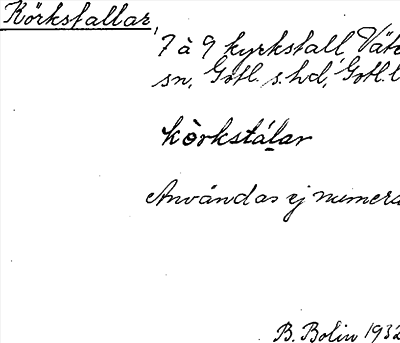 Körkstallar,
7 à 9 kyrkstall, Väte
sn, Gotl. s. hd, Gotl. l
kòrkstálar
Användas ej numera
B. Bolin 1932